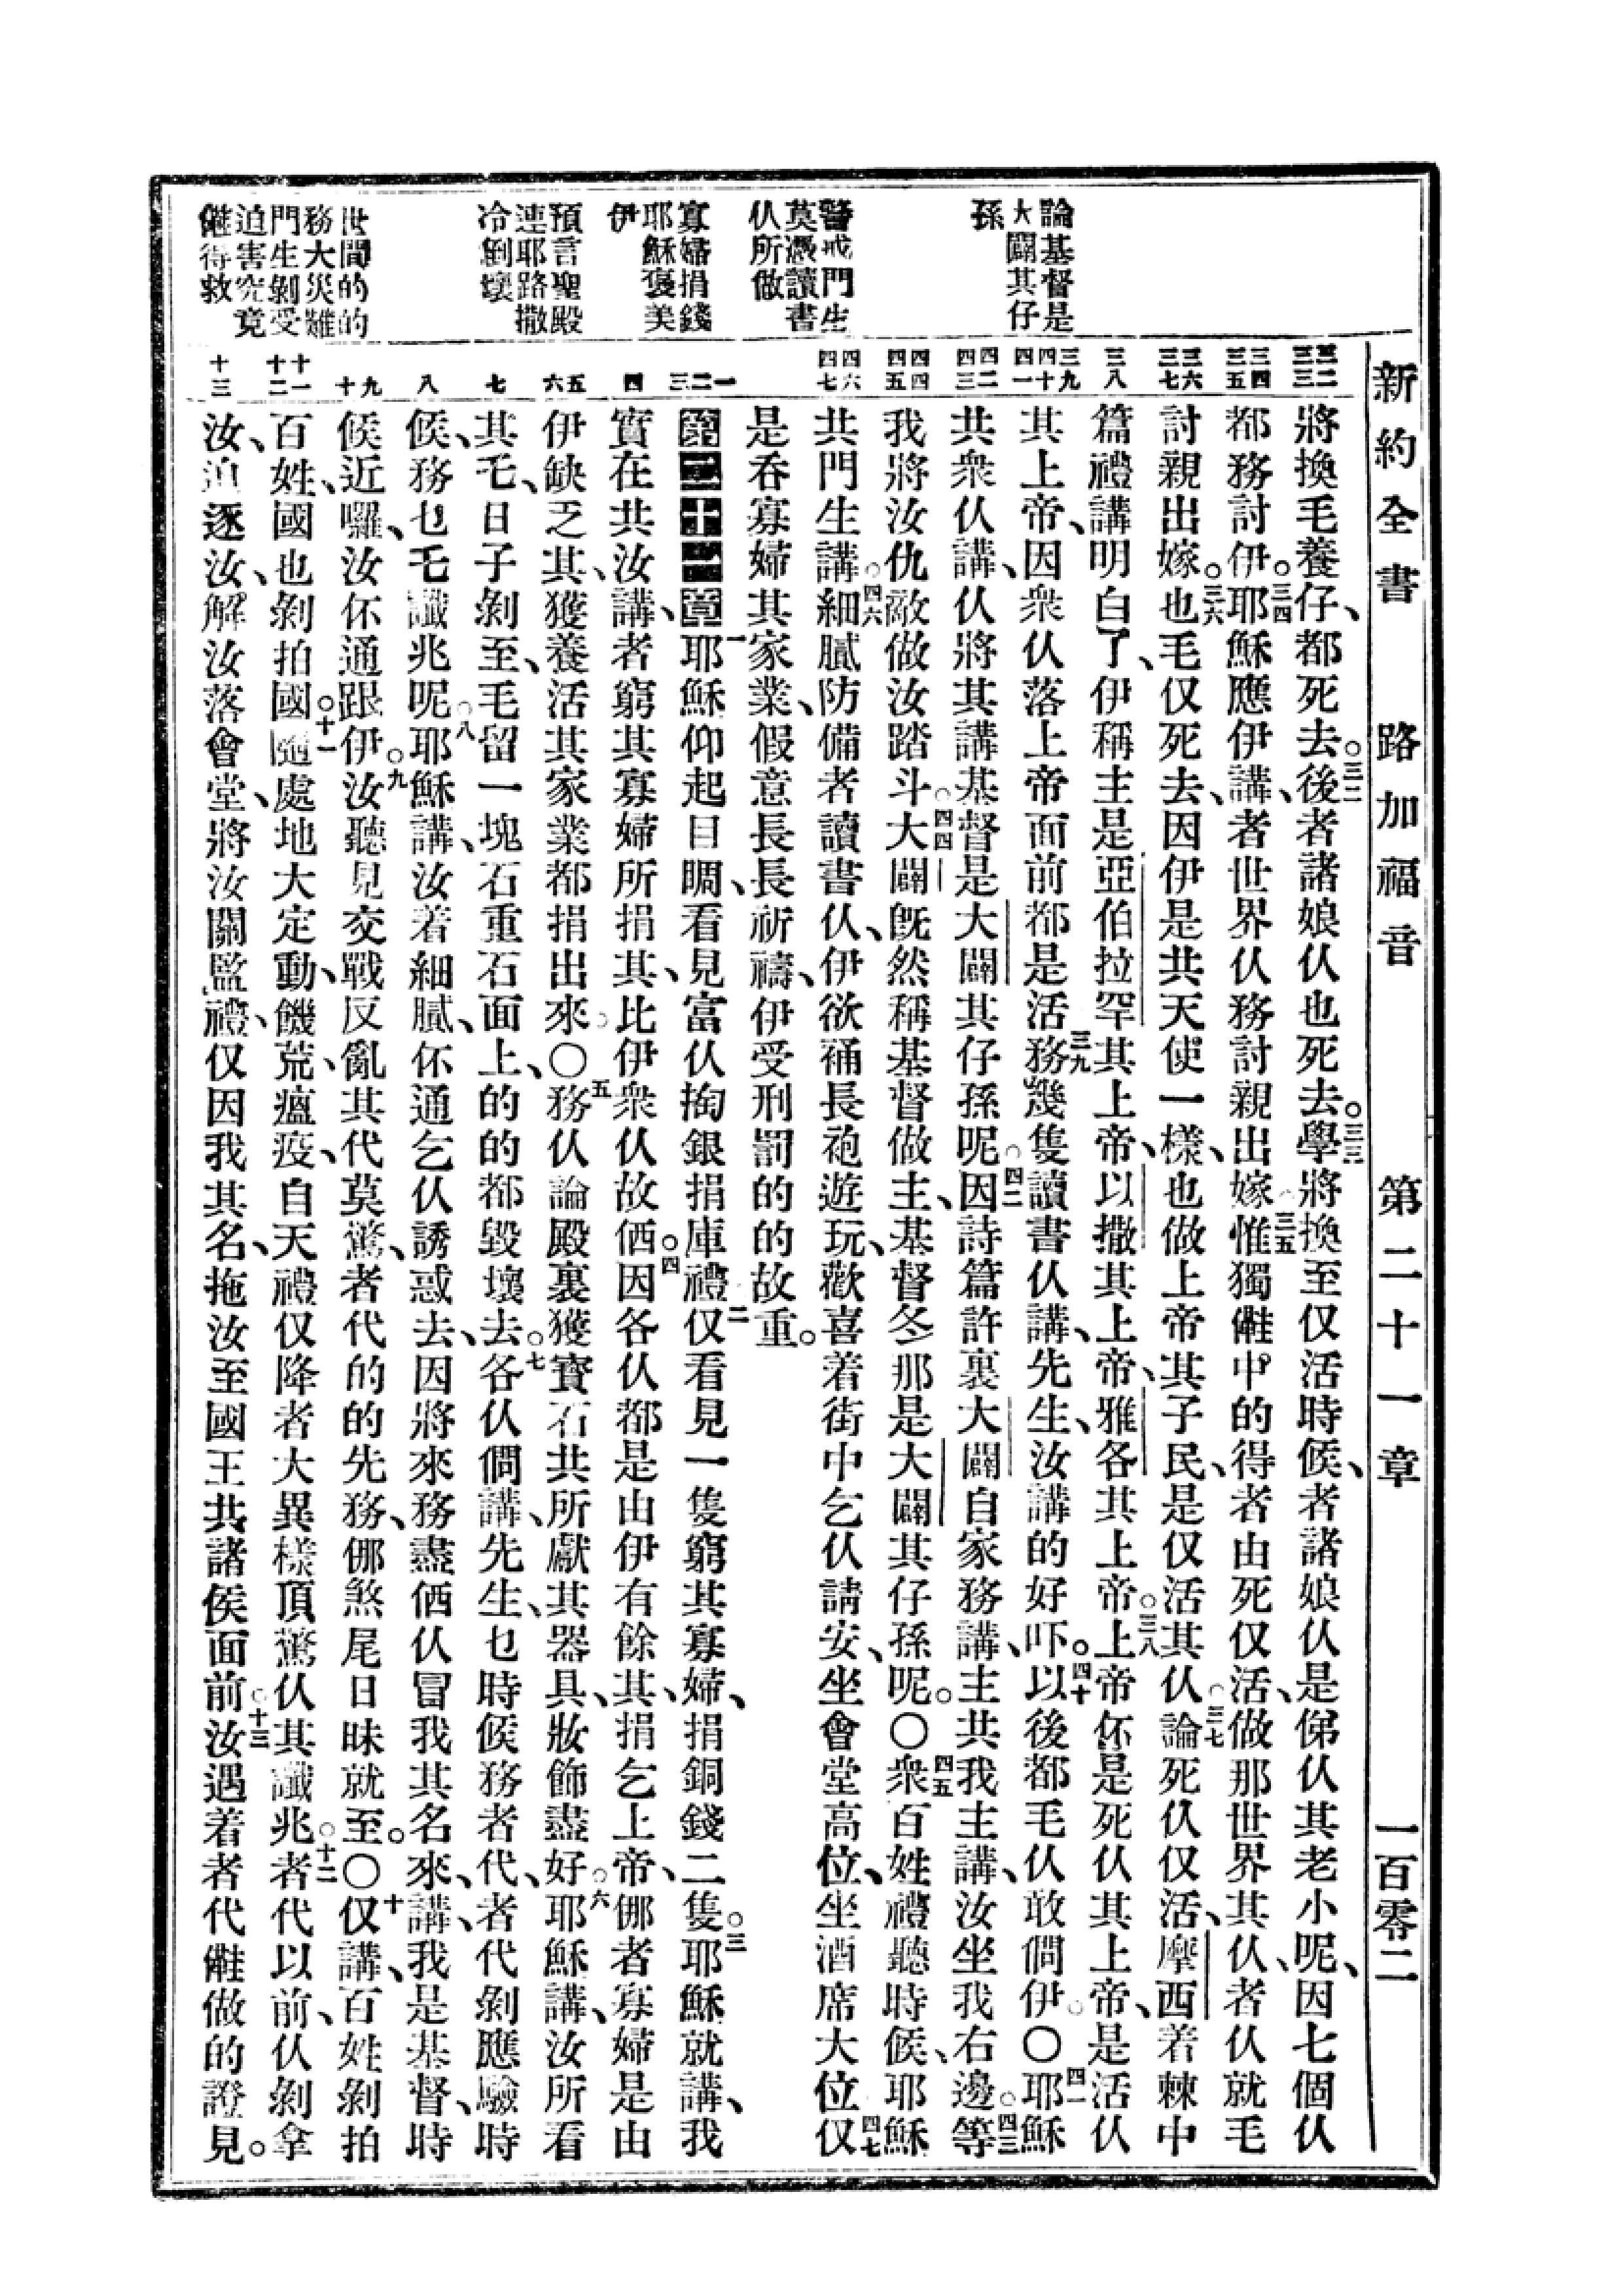 新約全書 路加福音 第二十一章 一百零二
論基督是
大闢其仔
孫
警戒門生
莫憑讀書
仈所做
寡婦捐錢
耶穌褒美
伊
預言聖殿
連耶路撒
冷倒壞
世間的的
務大災難
門生剝受
迫害究竟
㒰得救
三二 三三
三四 三五
三六 三七
三八
三九 四十 四一
四二 四三
四四 四五
四六 四七
一 二 三
四
五 六
七
八
九 十
十一 十二
十三
將換毛養仔、都死去。三二後者諸娘仈也死去。三三學將換至仅活時候、者諸娘仈是俤仈其老小呢、因七個仈
都務討伊。三四耶穌應伊講、者世界仈務討親出嫁。三五惟獨㒰中的得者由死仅活、做那世界其仈、者仈就毛
討親出嫁。三六也毛仅死去、因伊是共天使一樣、也做上帝其子民、是仅活其仈。三七論死仈仅活、摩西着棘中
篇禮講明白了、伊稱主是亞伯拉罕其上帝、以撒其上帝、雅各其上帝。三八上帝伓是死仈其上帝、是活仈
其上帝、因衆仈落上帝面前都是活。三九務幾隻讀書仈講、先生、汝講的好吓。四十以後都毛仈敢問伊。〇四一耶穌
共衆仈講、仈將其講基督是大闢其仔孫呢。四二因詩篇許裏大闢自家務講、主共我主講、汝坐我右邊。四三等
我將汝仇敵做汝踏斗。四四大闢旣然稱基督做主、基督冬那是大闢其仔孫呢。〇四五衆百姓禮聽時候、耶穌
共門生講。四六細膩防備者讀書仈、伊欲褅長袍遊玩、歡喜着街中乞仈請安、坐會堂高位、坐酒席大位。四七仅
是吞寡婦其家業、假意長長祈禱、伊受刑罰的的故重。
第二十一章 一耶穌仰起目睭、看見富仈掏銀捐庫禮。二仅看見一隻窮其寡婦、捐銅錢二隻。三耶穌就講、我
實在共汝講、者窮其寡婦所捐其、比伊衆仈故価。四因各仈都是由伊有餘其、捐乞上帝、㑚者寡婦是由
伊缺乏其、獲養活其家業都捐出來。〇五務仈論殿裏獲寶石共所獻其器具、妝飾盡好。六耶穌講、汝所看
其乇、日子剝至、毛留一塊石重石面上、的的都毀壞去。七各仈問講、先生、乜時候務者代、者代剝應驗時
候、務乜乇讖兆呢。八耶穌講、汝着細膩、伓通乞仈誘惑去、因將來務盡価仈冒我其名來、講、我是基督、時
候近囉、汝伓通跟伊。九汝聽見交戰反亂其代莫驚、者代的的先務、㑚煞尾日昧就至。〇十仅講、百姓剝拍
百姓、國也剝拍國。十一隨處地大定動、饑荒、瘟疫、自天禮仅降者大異樣頂驚仈其讖兆。十二者代以前、仈剝拿
汝、迫逐汝、解汝落會堂、將汝關監禮、仅因我其名、拖汝至國王共諸侯面前。十三汝遇着者代㒰做的證見。